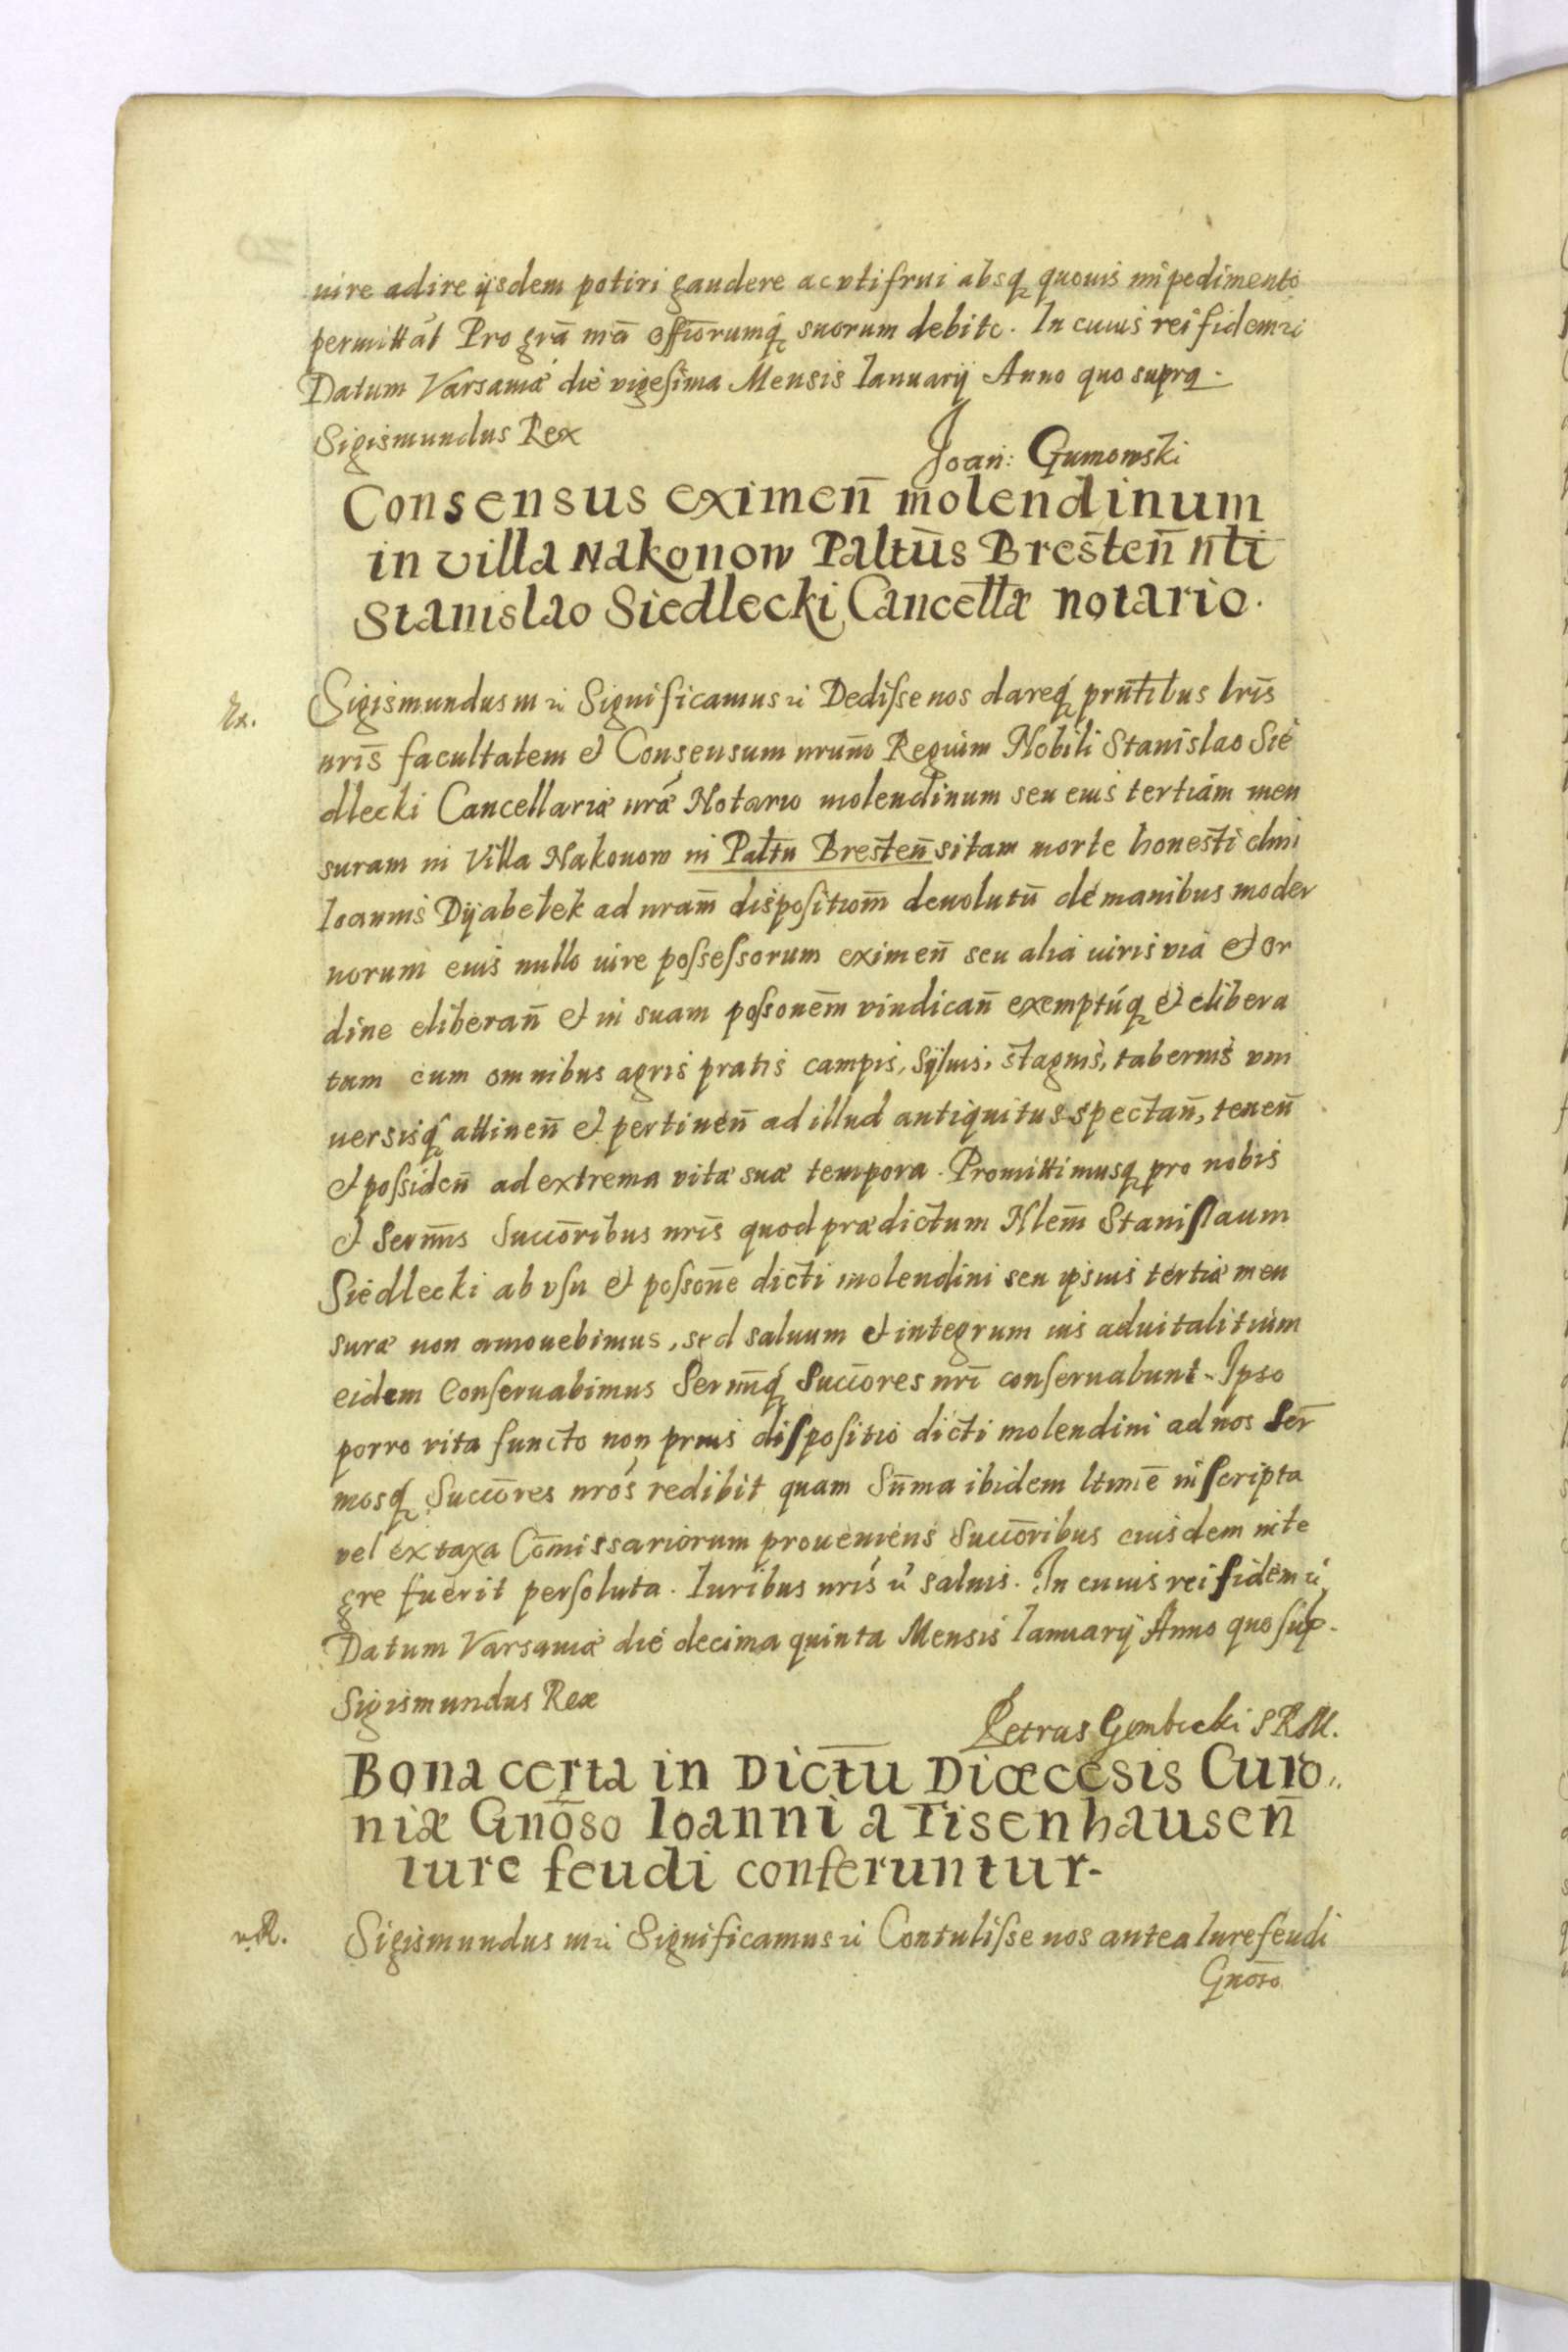 uire adire ijsdem potiri gaudere ac vtifrui absq quouis impedimento
permittāt Pro grā nrā offiorumq suorum debito. In cuius rei fidem
Datum Varsauiæ die vigesima Mensis Ianuarij Anno quo supra.
Sigismundus Rex
Joan: Gumowski
Consensus eximen̄ molendinum
in villa Nakonow Paltūs Bresten̄ nli
Stanislao Siedlecki Cancellæ notario.
Ex.
Sigismundus III &c Significamus &c Dedisse nos dareq prn̄tibus lris
nris̄ facultatem et Consensum nrum̄ Regium Nobili Stanislao Sie
dlecki Cancellariæ nræ Notario molendinum seu eius tertiam men
suram in Villa Nakonow in Paltu Bresten̄ sitam morte honesti olim
Ioannis Dyabelek ad nram̄ dispositiom̄ deuolutū de manibus moder
norum eius nullo iure possessorum eximen̄ seu alia iuris via et or
dine eliberan̄ et in suam possonem̄ vindican̄ exemptúq et elibera
tum cum omnibus agris pratis campis, syluis, stagnis, tabernis vni
uersisq attinen̄ et pertinen̄ ad illud antiquitus spectan̄, tenen̄
et possiden̄ ad extrema vitæ suæ tempora. Promittimusq pro nobis
et Sermis̄ Succorībus nris̄ quod prædictum Nlem̄ Stanislaum
Siedlecki ab vsu et possone̅ dicti molendini seu ipsius tertiæ men
suræ non amouebimus, sed saluum et integrum ius aduitalitium
eidem conseruabimus Sermiq Succores nri conseruabunt. Ipso
porro vita functo non prius dispositio dicti molendini ad nos Ser
mosq Succores nros redibit quam Sum̄a ibidem ltime inscripta
vel ex taxa Com̄issariorum proueniens Succoribus eiusdem inte
gre fuerit persoluta. Iuribus nris &c saluis. In cuius rei fidem &c
Datum Varsauiæ die decima quinta Mensis Ianuarij Anno quo sup.
Sigismundus Rex
Petrus Gembicki S R M.
Bona certa in Dictū Diœcesis Curo
niæ Gnōso Ioanni a Tisenhausen̄
iure feudi conferuntur.
R.
Sigismundus III &c Significamus &c Contulisse nos antea Iure feudi
Gnoso